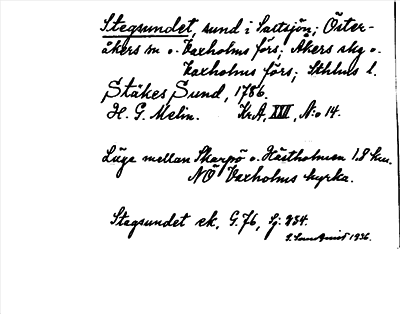 Stegsundet, sund i Saltsjön; Öster-
åkers sn o. Vaxholms förs; Åkers skg o.
Vaxholms förs; Sthlms l.
Stäkes Sund, 1786.
H. G. Melin. KrA, XXVI, N:o 14.
Läge mellan Skarpö o. Hästholmen 1.8 km.
NÖ Vaxholms kyrka.
Stegsundet ek, G.76, Sj: 234.
1936.